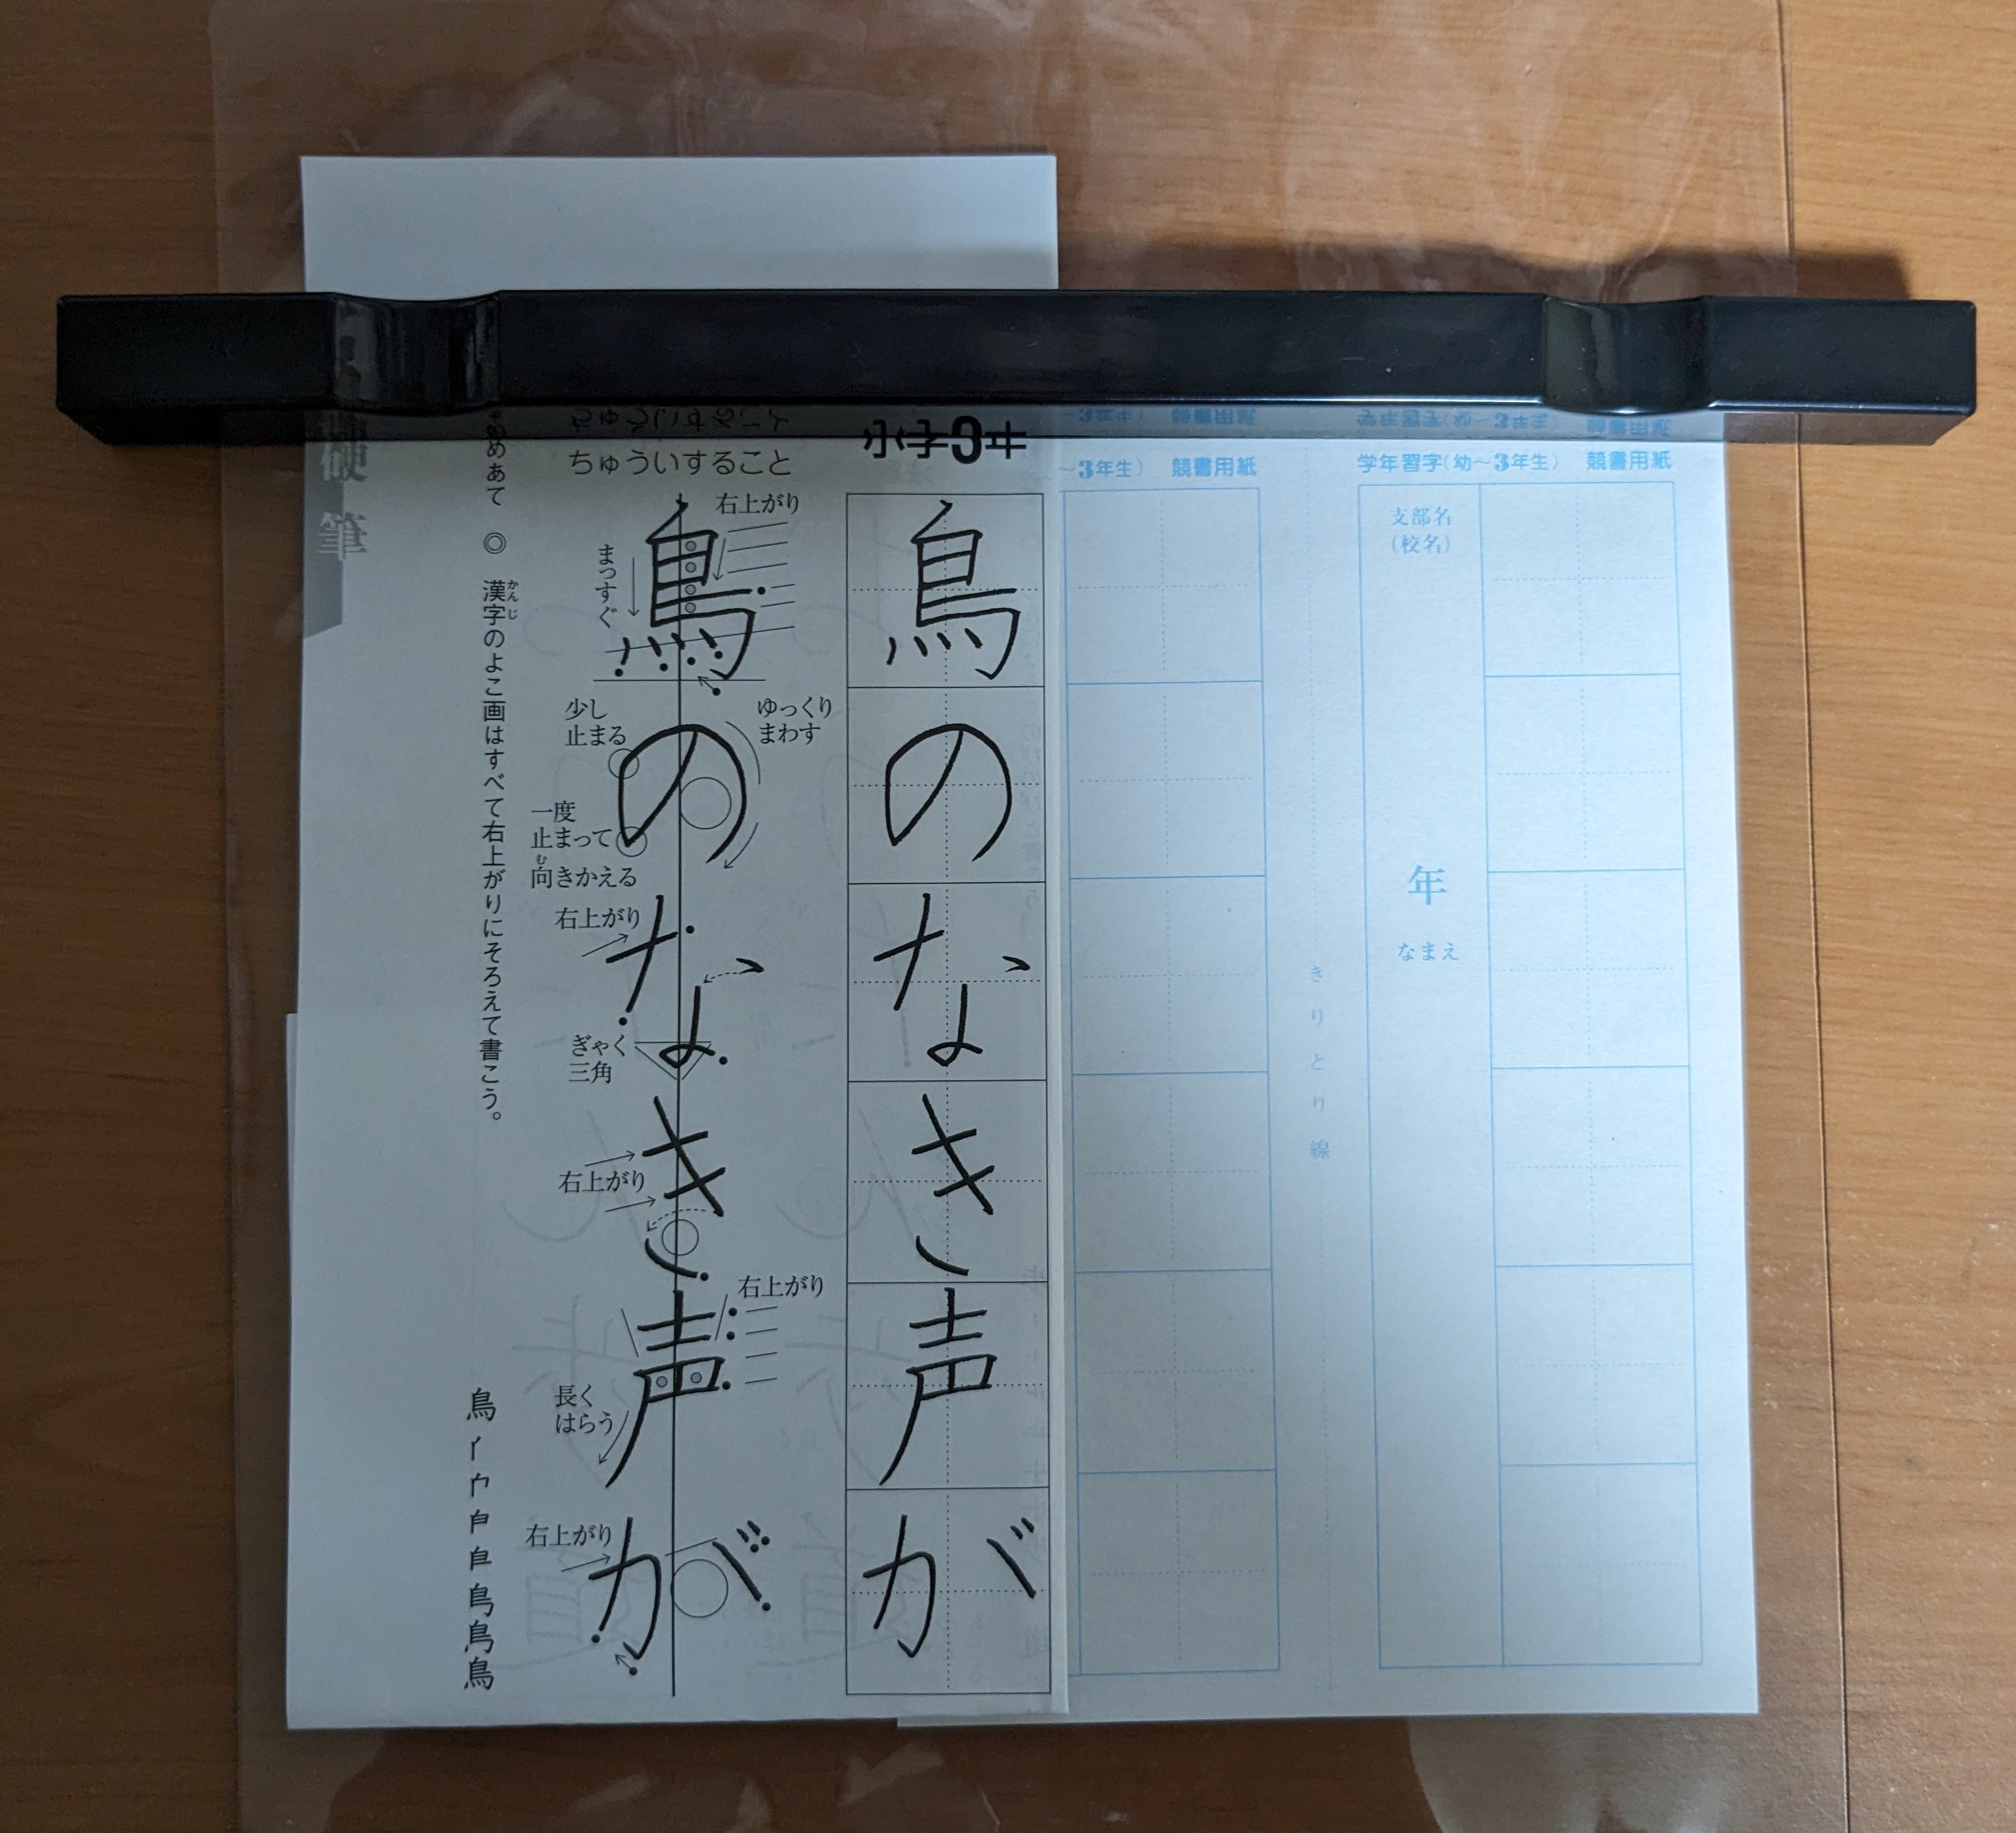 学年習字(幼〜3年生) 競書用紙
支部名
(校名)
年
なまえ
きりとり線
〜3年生) 競書用紙
小学3年
鳥のなき声が
ちゅういすること
鳥のなき声が
右上がり
まっすぐ
少し
止まる
ゆっくり
まわす
一度
止まって
向きかえる
む
右上がり
ぎゃく
三角
右上がり
右上がり
長く
はらう
右上がり
めあて ◎ 漢字のよこ画はすべて右上がりにそろえて書こう。
かんじ
鳥
鳥
硬筆